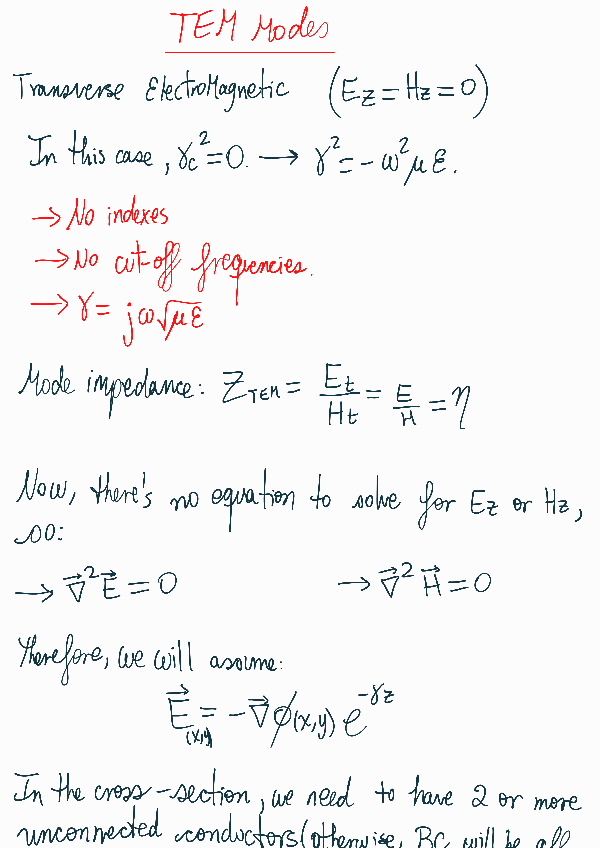 TEM Modes
Transverse ElectroMagnetic (Ez = Hz = 0)
In this case, γc² = 0. → γ² = -ω²με.
→ No indexes
→ No cut-off frequencies.
→ γ = jω√με
Mode impedance: Z_TEM = Et/Ht = E/H = η
Now, there's no equation to solve for Ez or Hz,
so:
→ ∇⃗²E⃗ = 0 → ∇⃗²H⃗ = 0
Therefore, we will assume:
E⃗(x,y) = -∇⃗ϕ(x,y) e^-γz
In the cross-section, we need to have 2 or more
unconnected conductors (otherwise, BC will be all